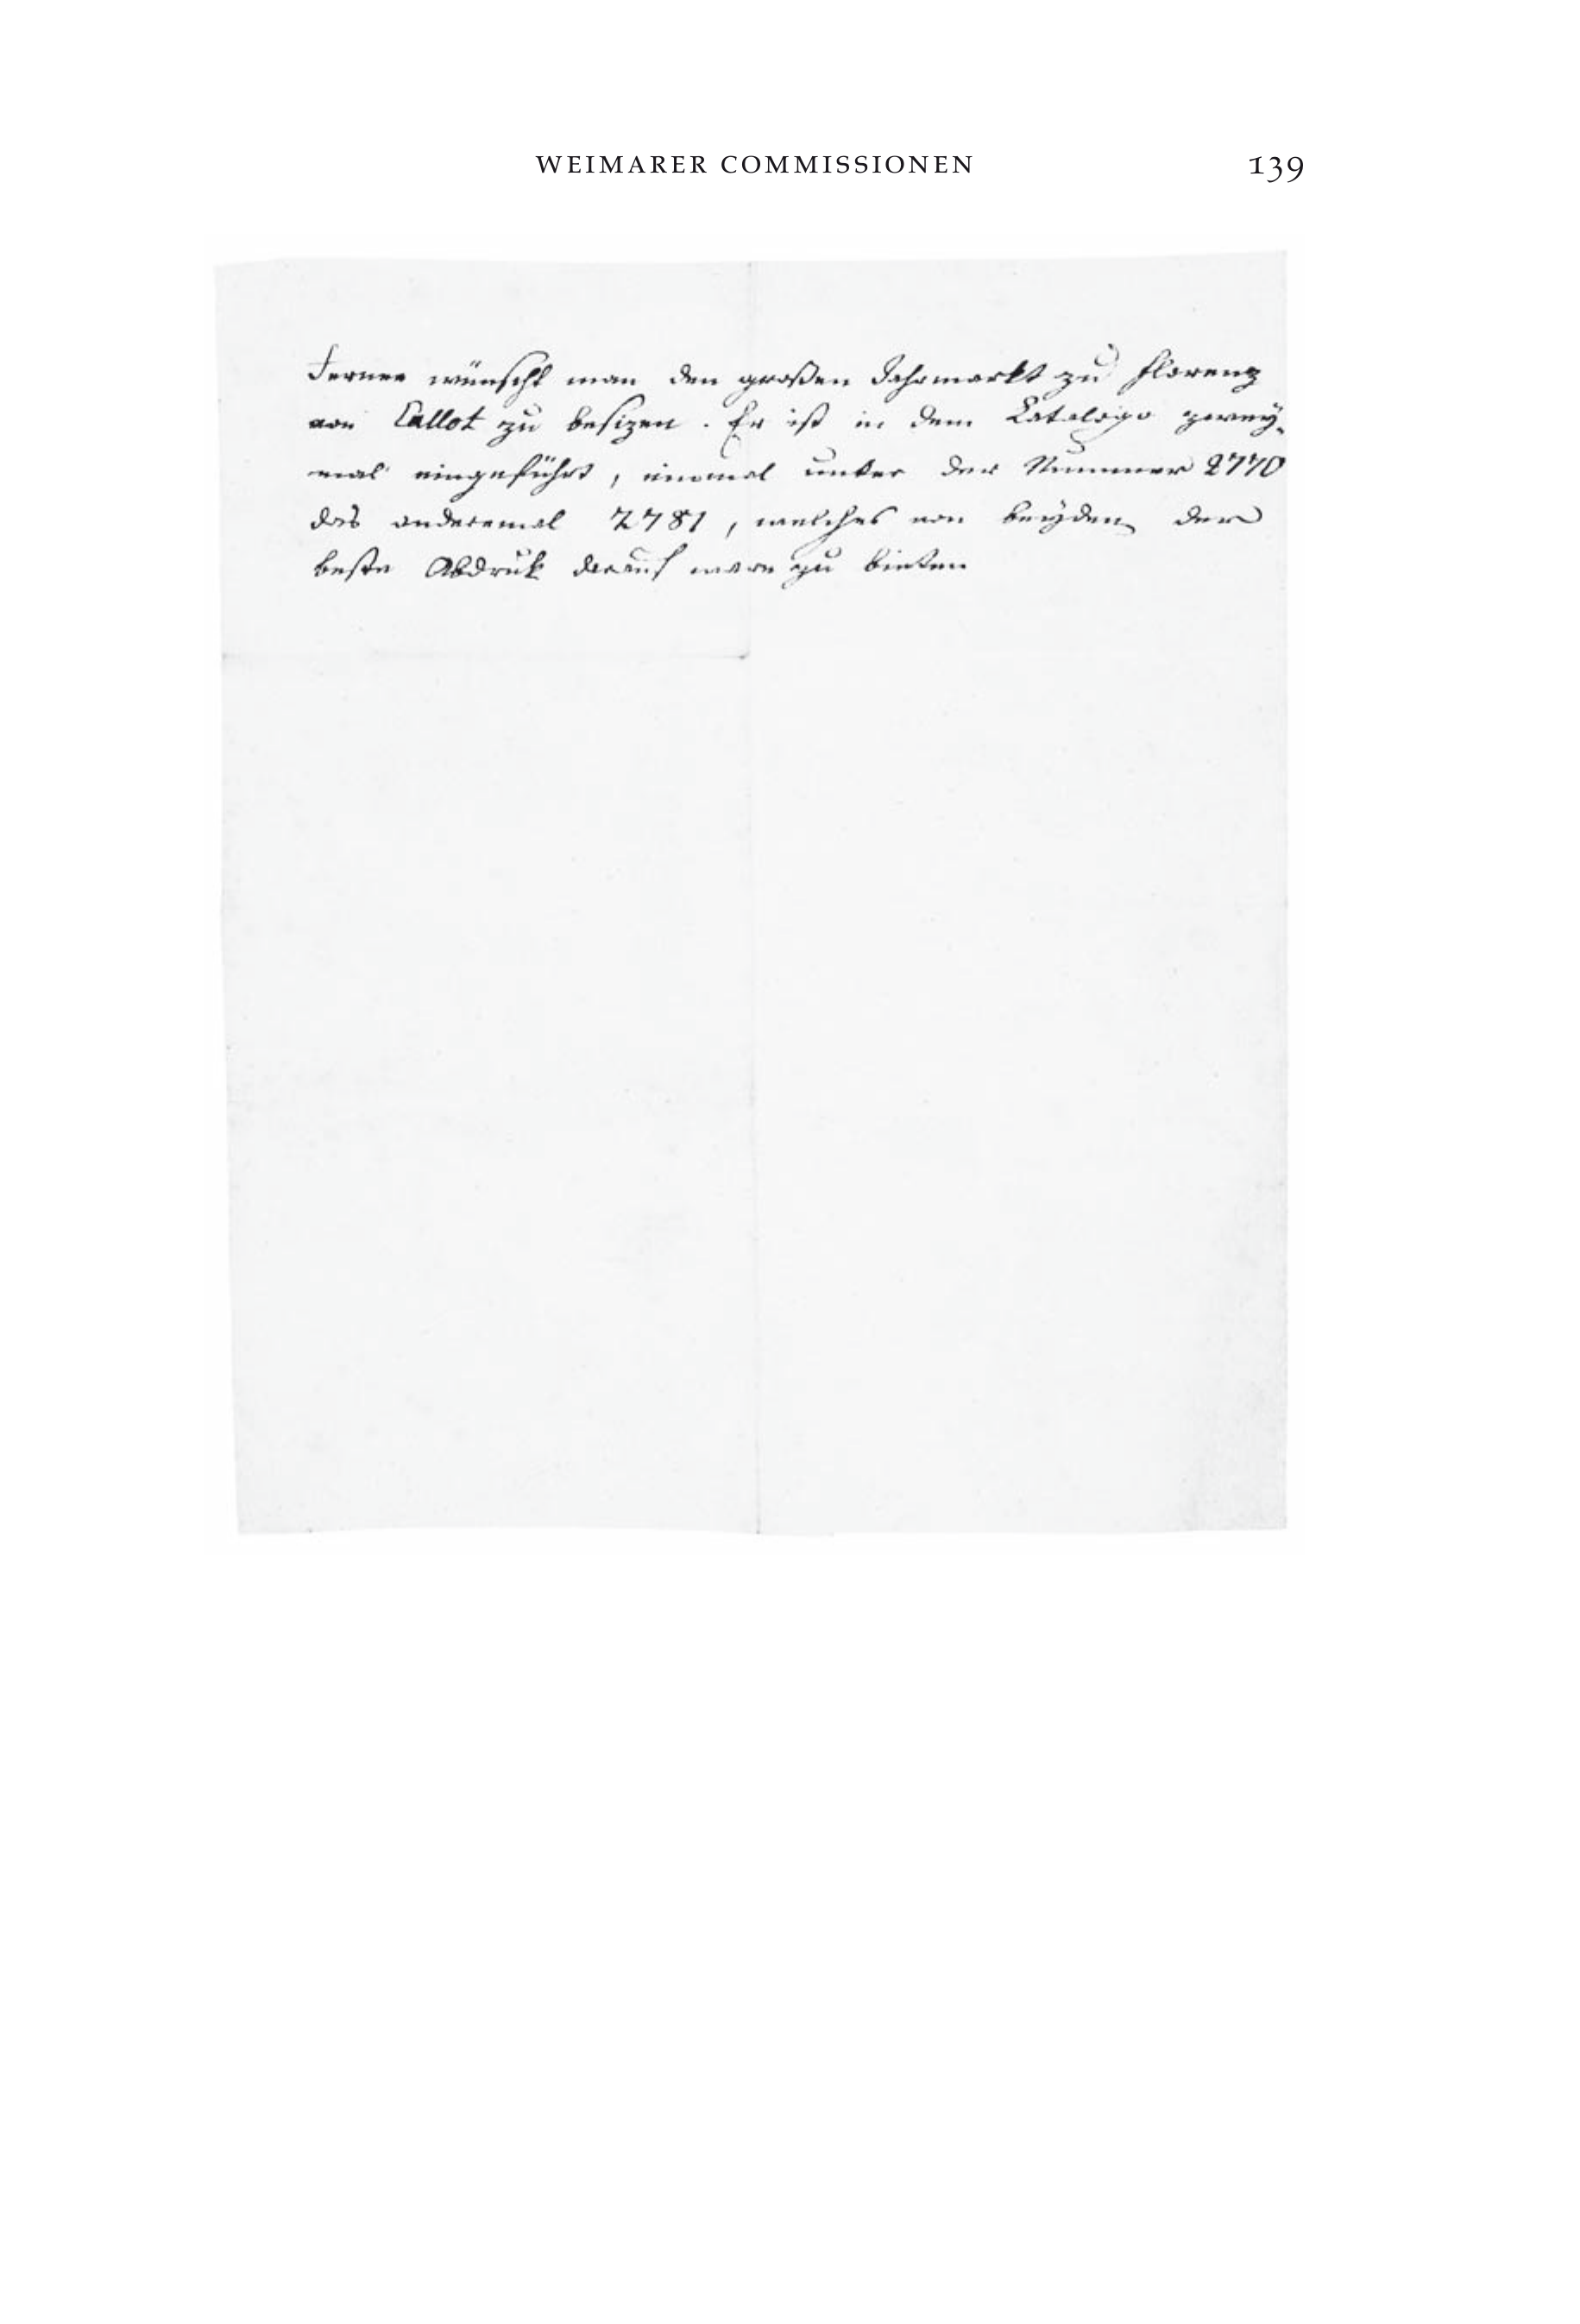 WEIMARER COMMISSIONEN 139
Ferner wünscht man den großen Jahrmarkt zu Florenz
von Callot zu besizen. Er ist in dem Catalogo zwey-
mal eingeführt, einmal unter der Nummer 2770
das anderemal 2781, welches von beyden der
beste Abdruk darauf wäre zu bieten